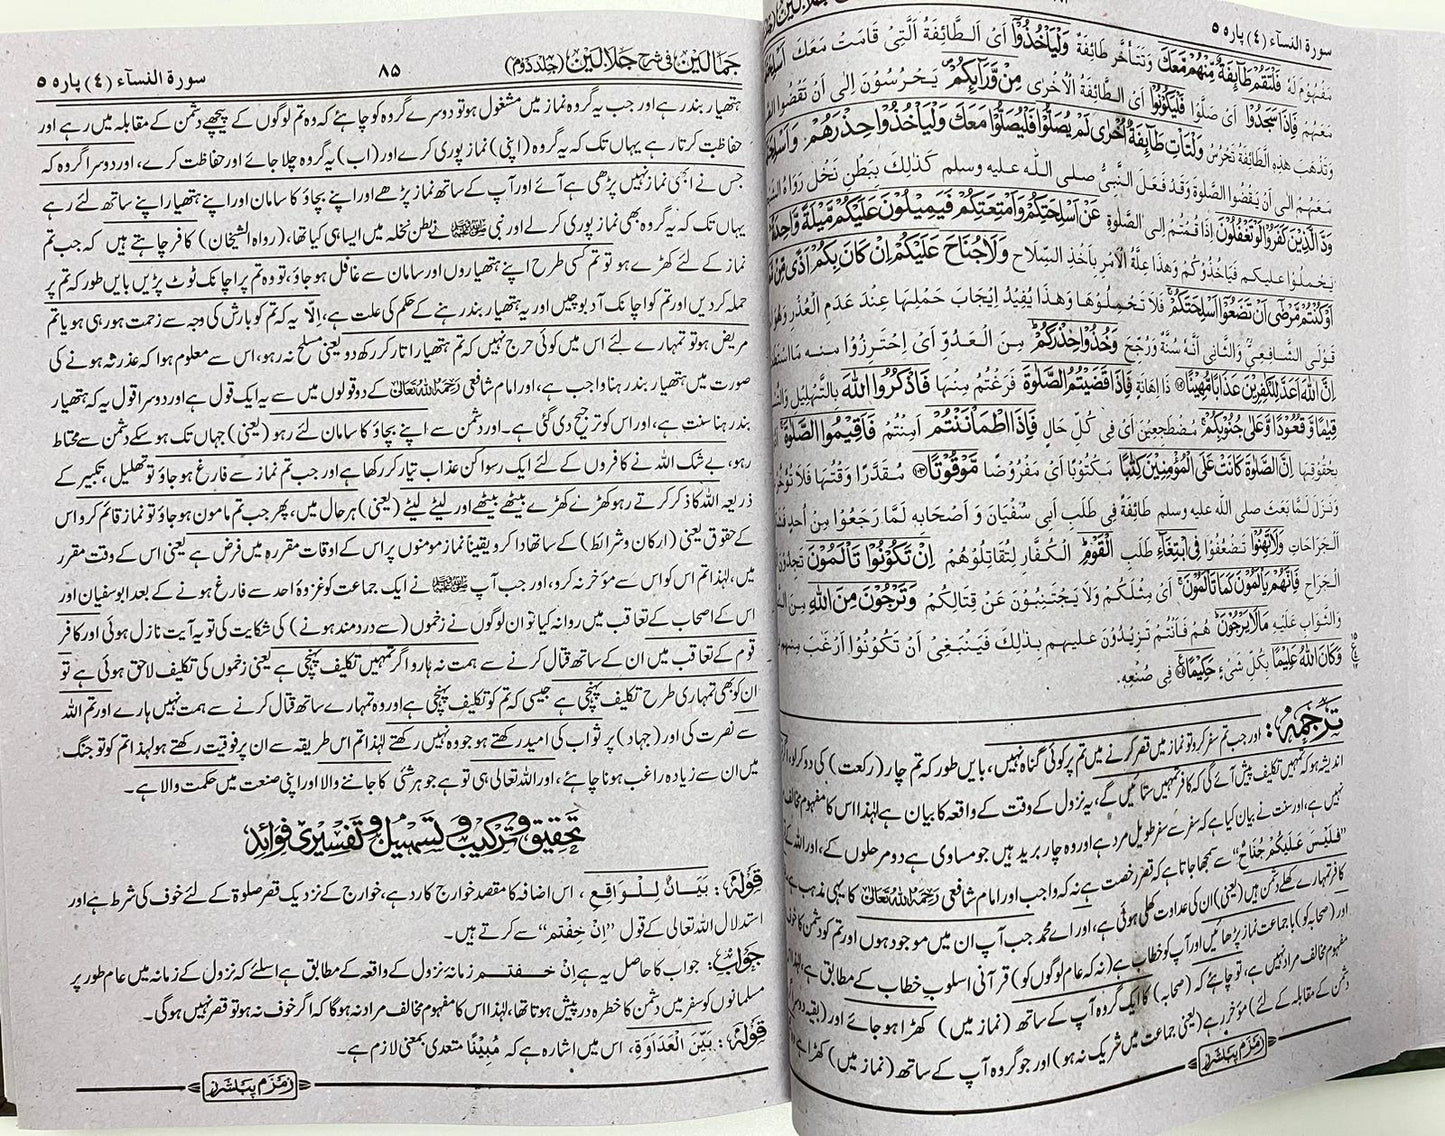 سورة النسآء (٤) پاره ٥
مَفْهُومَ لَهٗ فَلْتَقُمْ طَآئِفَةٌ مِّنْهُمْ مَّعَكَ وَتَتَأَخَّرُ طَائِفَةٌ وَلْيَاْخُذُوْٓا اَىْ اَلطَّائِفَةُ الَّتِىْ قَامَتْ مَعَكَ
مَعَهُمْ فَاِذَا سَجَدُوْا اَىْ صَلَّوْا فَلْيَكُوْنُوْا اَىْ الطَّائِفَةُ الْاُخْرٰى مِنْ وَّرَآئِكُمْ يَحْرُسُوْنَ اِلٰى اَنْ تَقْضُوا
وَتَذْهَبَ هٰذِهِ الطَّائِفَةُ تَحْرُسُ وَلْتَاْتِ طَآئِفَةٌ اُخْرٰى لَمْ يُصَلُّوْا فَلْيُصَلُّوْا مَعَكَ وَلْيَاْخُذُوْا حِذْرَهُمْ
مَعَهُمْ اِلٰى اَنْ يَقْضُوا الصَّلٰوةَ وَقَدْ فَعَلَ النَّبِىُّ صلى الله عليه وسلم كَذٰلِكَ بِبَطْنِ نَخْلٍ رَوَاهُ
وَدَّ الَّذِيْنَ كَفَرُوْا لَوْ تَغْفُلُوْنَ اِذَا قُمْتُمْ اِلَى الصَّلٰوةِ عَنْ اَسْلِحَتِكُمْ وَاَمْتِعَتِكُمْ فَيَمِيْلُوْنَ عَلَيْكُمْ مَّيْلَةً وَّاحِدَةً
يَحْمِلُوْا عَلَيْكُمْ فَيَاْخُذُوْكُمْ وَهٰذَا عِلَّةُ الْاَمْرِ بِاَخْذِ السِّلَاحِ وَلَا جُنَاحَ عَلَيْكُمْ اِنْ كَانَ بِكُمْ اَذًى مِّنْ
اَوْ كُنْتُمْ مَّرْضٰٓى اَنْ تَضَعُوْٓا اَسْلِحَتَكُمْ فَلَا تَحْمِلُوْهَا وَهٰذَا يُفِيْدُ اِيْجَابَ حَمْلِهَا عِنْدَ عَدَمِ الْعُذْرِ وَهُوَ
قَوْلَىِ الشَّافِعِىِّ وَالثَّانِى اَنَّهٗ سُنَّةٌ وَرُجِّحَ وَخُذُوْا حِذْرَكُمْ مِنَ الْعَدُوِّ اَىْ اِحْتَرِزُوْا مِنْهُ
اِنَّ اللّٰهَ اَعَدَّ لِلْكٰفِرِيْنَ عَذَابًا مُّهِيْنًا ذَا اِهَانَةٍ فَاِذَا قَضَيْتُمُ الصَّلٰوةَ فَرَغْتُمْ مِنْهَا فَاذْكُرُوا اللّٰهَ بِالتَّهْلِيْلِ
قِيَامًا وَّقُعُوْدًا وَّعَلٰى جُنُوْبِكُمْ مُضْطَجِعِيْنَ اَىْ فِىْ كُلِّ حَالٍ فَاِذَا اطْمَاْنَنْتُمْ اَمِنْتُمْ فَاَقِيْمُوا الصَّلٰوةَ
بِحُقُوْقِهَا اِنَّ الصَّلٰوةَ كَانَتْ عَلَى الْمُؤْمِنِيْنَ كِتٰبًا مَكْتُوْبًا اَىْ مَفْرُوْضًا مَّوْقُوْتًا مُقَدَّرًا وَقْتُهَا فَلَا
وَنَزَلَ لَمَّا بَعَثَ صلى الله عليه وسلم طَائِفَةً فِىْ طَلَبِ اَبِىْ سُفْيَانَ وَ اَصْحَابِهٖ لَمَّا رَجَعُوْا مِنْ اُحُدٍ
الْجَرَاحَاتِ وَلَا تَهِنُوْا تَضْعُفُوْا فِى ابْتِغَآءِ طَلَبِ الْقَوْمِ الْكُفَّارِ لِتُقَاتِلُوْهُمْ اِنْ تَكُوْنُوْا تَاْلَمُوْنَ
الْجِرَاحِ فَاِنَّهُمْ يَاْلَمُوْنَ كَمَا تَاْلَمُوْنَ اَىْ مِثْلَكُمْ وَلَا يَجْتَنِبُوْنَ عَنْ قِتَالِكُمْ وَتَرْجُوْنَ مِنَ اللّٰهِ مِنَ
وَالثَّوَابِ عَلَيْهِ مَا لَا يَرْجُوْنَ هُمْ فَاَنْتُمْ تَزِيْدُوْنَ عَلَيْهِمْ بِذٰلِكَ فَيَنْبَغِىْ اَنْ تَكُوْنُوْا اَرْغَبَ مِنْهُمْ
وَكَانَ اللّٰهُ عَلِيْمًا بِكُلِّ شَىْءٍ حَكِيْمًا فِىْ صُنْعِهٖ.
ترجمہ: اور جب تم سفر کرو تو نماز میں قصر کرنے میں تم پر کوئی گناہ نہیں، بایں طور کہ تم چار (رکعت) کی دو کرلو،
اندیشہ ہو کہ تمہیں تکلیف پیش آئے گی کہ کافر تمہیں ستائیں گے، یہ نزول کے وقت کے واقعہ کا بیان ہے لہٰذا اس کا مفہوم مخالف
نہیں ہے، اور سنت نے بیان کیا ہے کہ سفر سے سفر طویل مراد ہے اور وہ چار برید ہیں جو مساوی ہے دو مرحلوں کے، اور اللہ کے
”فَلَيْسَ عَلَيْكُمْ جُنَاحٌ“ سے سمجھا جاتا ہے کہ قصر رخصت ہے نہ کہ واجب اور امام شافعی رَحِمَهُ اللهُ تَعَالٰى کا یہی مذہب ہے،
کافر تمہارے کھلے دشمن ہیں (یعنی) ان کی عداوت کھلی ہوئی ہے، اور اے محمد جب آپ ان میں موجود ہوں اور تم کو دشمن کا
اور (صحابہ کو) باجماعت نماز پڑھائیں اور آپ کو خطاب ہے (نہ کہ عام لوگوں کو) قرآنی اسلوب خطاب کے مطابق ہے،
مفہوم مخالف مراد نہیں ہے، تو چاہئے کہ (صحابہ) کا ایک گروہ آپ کے ساتھ (نماز میں) کھڑا ہوجائے اور (بقیہ
دشمن کے مقابلہ کے لئے) مؤخر رہے (یعنی جماعت میں شریک نہ ہو) اور جو گروہ آپ کے ساتھ (نماز میں) کھڑا ہے
زمزم پبلشرز
جمالین فی شرح جلالین (جلد دوم)
٨٥
سورة النسآء (٤) پاره ٥
ہتھیار بند رہے اور جب یہ گروہ نماز میں مشغول ہو تو دوسرے گروہ کو چاہئے کہ وہ تم لوگوں کے پیچھے دشمن کے مقابلہ میں رہے اور
حفاظت کرتا رہے یہاں تک کہ یہ گروہ (اپنی) نماز پوری کرے اور (اب) یہ گروہ چلا جائے اور حفاظت کرے، اور دوسرا گروہ کہ
جس نے ابھی نماز نہیں پڑھی ہے آئے اور آپ کے ساتھ نماز پڑھے اور اپنے بچاؤ کا سامان اور اپنے ہتھیار اپنے ساتھ لئے رہے
یہاں تک کہ یہ گروہ بھی نماز پوری کرلے اور نبی ﷺ نے بطن نخلہ میں ایسا ہی کیا تھا، (رواہ الشیخان) کافر چاہتے ہیں کہ جب تم
نماز کے لئے کھڑے ہو تو تم کسی طرح اپنے ہتھیاروں اور سامان سے غافل ہوجاؤ، تو وہ تم پر اچانک ٹوٹ پڑیں بایں طور کہ تم پر
حملہ کردیں اور تم کو اچانک آدبوچیں اور یہ ہتھیار بند رہنے کے حکم کی علت ہے، اِلّا یہ کہ تم کو بارش کی وجہ سے زحمت ہورہی ہو یا تم
مریض ہو تو تمہارے لئے اس میں کوئی حرج نہیں کہ تم ہتھیار اتار کر رکھ دو یعنی مسلح نہ رہو، اس سے معلوم ہوا کہ عذر نہ ہونے کی
صورت میں ہتھیار بند رہنا واجب ہے، اور امام شافعی رَحِمَهُ اللهُ تَعَالٰى کے دو قولوں میں سے یہ ایک قول ہے اور دوسرا قول یہ کہ ہتھیار
بند رہنا سنت ہے، اور اس کو ترجیح دی گئی ہے۔ اور دشمن سے اپنے بچاؤ کا سامان لئے رہو (یعنی) جہاں تک ہوسکے دشمن سے محتاط
رہو، بے شک اللہ نے کافروں کے لئے ایک رسوا کن عذاب تیار کر رکھا ہے اور جب تم نماز سے فارغ ہوجاؤ تو تہلیل، تکبیر کے
ذریعہ اللہ کا ذکر کرتے رہو کھڑے کھڑے بیٹھے بیٹھے اور لیٹے لیٹے (یعنی) ہر حال میں، پھر جب تم مامون ہوجاؤ تو نماز قائم کرو اس
کے حقوق یعنی (ارکان وشرائط) کے ساتھ ادا کرو یقیناً نماز مومنوں پر اس کے اوقات مقررہ میں فرض ہے یعنی اس کے وقت مقرر
میں، لہٰذا تم اس کو اس سے مؤخر نہ کرو، اور جب آپ ﷺ نے ایک جماعت کو غزوۂ احد سے فارغ ہونے کے بعد ابوسفیان اور
اس کے اصحاب کے تعاقب میں روانہ کیا تو ان لوگوں نے زخموں (سے درد مند ہونے) کی شکایت کی تو یہ آیت نازل ہوئی اور کافر
قوم کے تعاقب میں ان کے ساتھ قتال کرنے سے ہمت نہ ہارو اگر تمہیں تکلیف پہنچی ہے یعنی زخموں کی تکلیف لاحق ہوئی ہے تو
ان کو بھی تمہاری طرح تکلیف پہنچی ہے جیسی کہ تم کو تکلیف پہنچی ہے اور وہ تمہارے ساتھ قتال کرنے سے ہمت نہیں ہارے اور تم اللہ
سے نصرت کی اور (جہاد) پر ثواب کی امید رکھتے ہو جو وہ نہیں رکھتے لہٰذا تم اس طریقہ سے ان پر فوقیت رکھتے ہو لہٰذا تم کو تو جنگ
میں ان سے زیادہ راغب ہونا چاہئے، اور اللہ تعالی ہی تو ہے جو ہر شئی کا جاننے والا اور اپنی صنعت میں حکمت والا ہے۔
تحقیق و ترکیب و تسہیل و تفسیری فوائد
قَوْلُهٗ: بَيَانٌ لِلْوَاقِعِ، اس اضافہ کا مقصد خوارج کا رد ہے، خوارج کے نزدیک قصر صلوۃ کے لئے خوف کی شرط ہے اور
استدلال اللہ تعالی کے قول ”اِنْ خِفْتم“ سے کرتے ہیں۔
جَوَابْ: جواب کا حاصل یہ ہے اِنْ خفتم زمانۂ نزول کے واقعہ کے مطابق ہے اسلئے کہ نزول کے زمانہ میں عام طور پر
مسلمانوں کو سفر میں دشمن کا خطرہ در پیش ہوتا تھا، لہٰذا اس کا مفہوم مخالف مراد نہ ہوگا کہ اگر خوف نہ ہو تو قصر نہیں ہوگی۔
قَوْلُهٗ: بَيِّنَ الْعَدَاوَةِ، اس میں اشارہ ہے کہ مُبِيْنًا متعدی بمعنی لازم ہے۔
زمزم پبلشرز